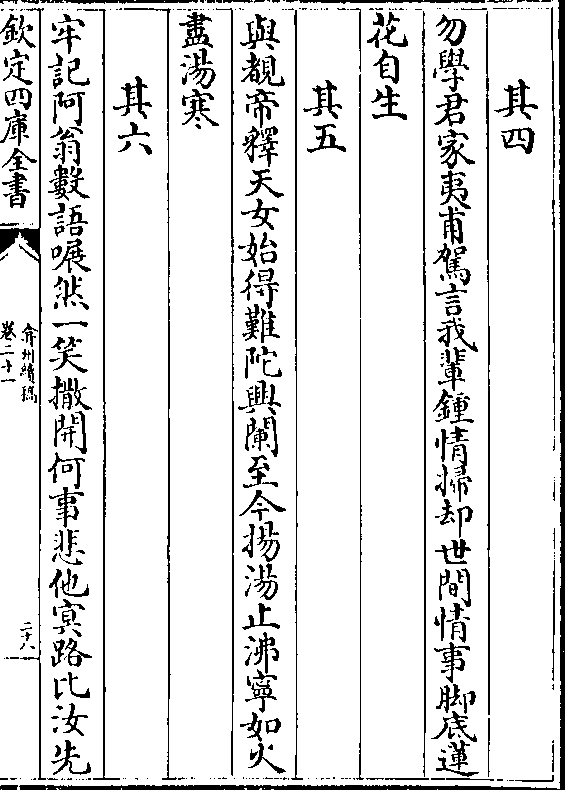 其四
勿學君家夷甫駕言我輩鍾情掃却世間情事脚底蓮
花自生
其五
與覩帝釋天女始得難陀興闌至今揚湯止沸寧如火
盡湯寒
其六
牢記阿翁數語囅然一笑撒開何事悲他冥路比汝先
欽定四庫全書
弇州續稿
卷二十一
二十八